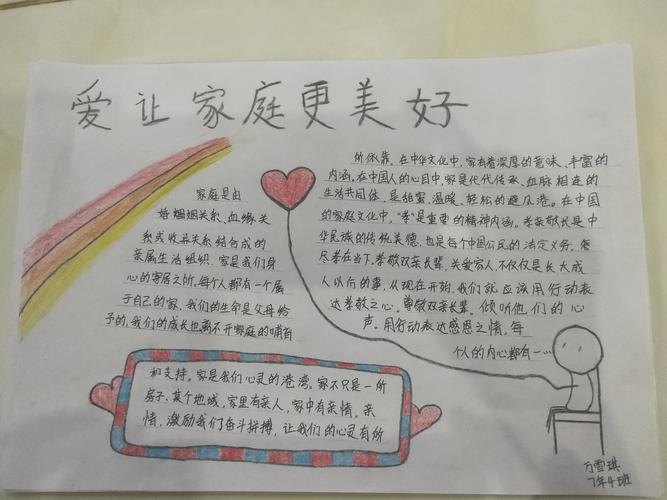 爱让家庭更美好
家庭是由
婚姻姻关系、血缘关
系或收养关系结合成的
亲属生活组织。家是我们身
心的寄居之所,每个人都有一个属
于自己的家。我们的生命是父母给
予的,我们的成长也离不开家庭的哺育
和支持。家是我们心灵的港湾。家不只是一所
房子、某个地域,家里有亲人,家中有亲情。亲
情,激励我们奋斗拼搏,让我们的心灵有所
所依靠。在中华文化中,家有着深厚的意味、丰富的
内涵。在中国人的心目中,家是代代传承、血脉相连的
生活共同体,是甜蜜、温暖、轻松的避风港。在中国
的家庭文化中,“孝”是重要的精神内涵。孝亲敬长是中
华民族的传统美德,也是每个中国公民的法定义务。
尽孝在当下。孝敬双亲长辈,关爱家人,不仅仅是长大成
人以后的事,从现在开始,我们就应该用行动表
达孝敬之心。尊敬双亲长辈,倾听他们的心
声。用行动表达感恩之情。每
个人的内心都有一…
万雪琪
7年4班